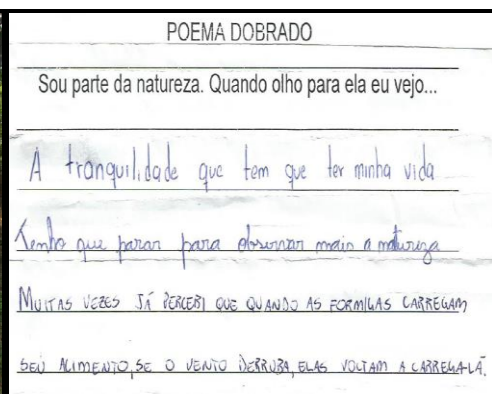 POEMA DOBRADO
Sou parte da natureza. Quando olho para ela eu vejo...
A tranquilidade que tem que ter minha vida
Tenho que parar para observar mais a natureza
MUITAS VEZES JÁ PERCEBI QUE QUANDO AS FORMIGAS CARREGAM
SEU ALIMENTO, SE O VENTO DERRUBA, ELAS VOLTAM A CARREGA-LÁ.